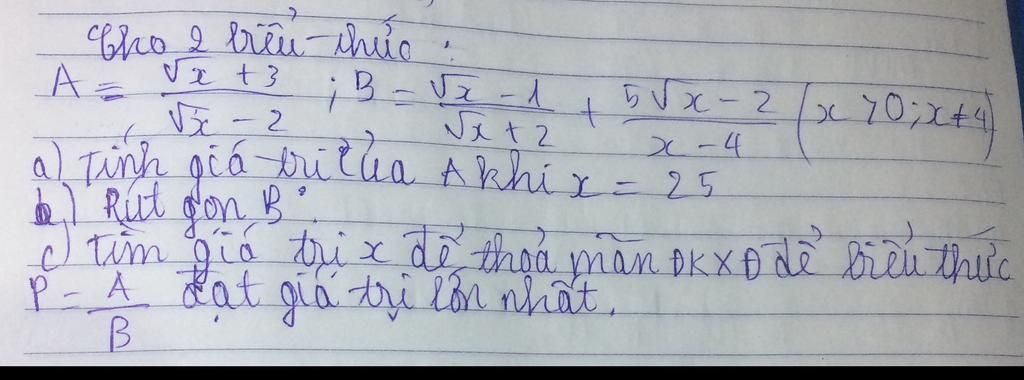 Cho 2 biểu thức :
A = (√x + 3)/(√x - 2) ; B = (√x - 1)/(√x + 2) + (5√x - 2)/(x - 4) (x > 0 ; x ≠ 4)
a) Tính giá trị của A khi x = 25
b) Rút gọn B.
c) Tìm giá trị x để thoả mãn ĐKXĐ để biểu thức
P = A/B đạt giá trị lớn nhất.